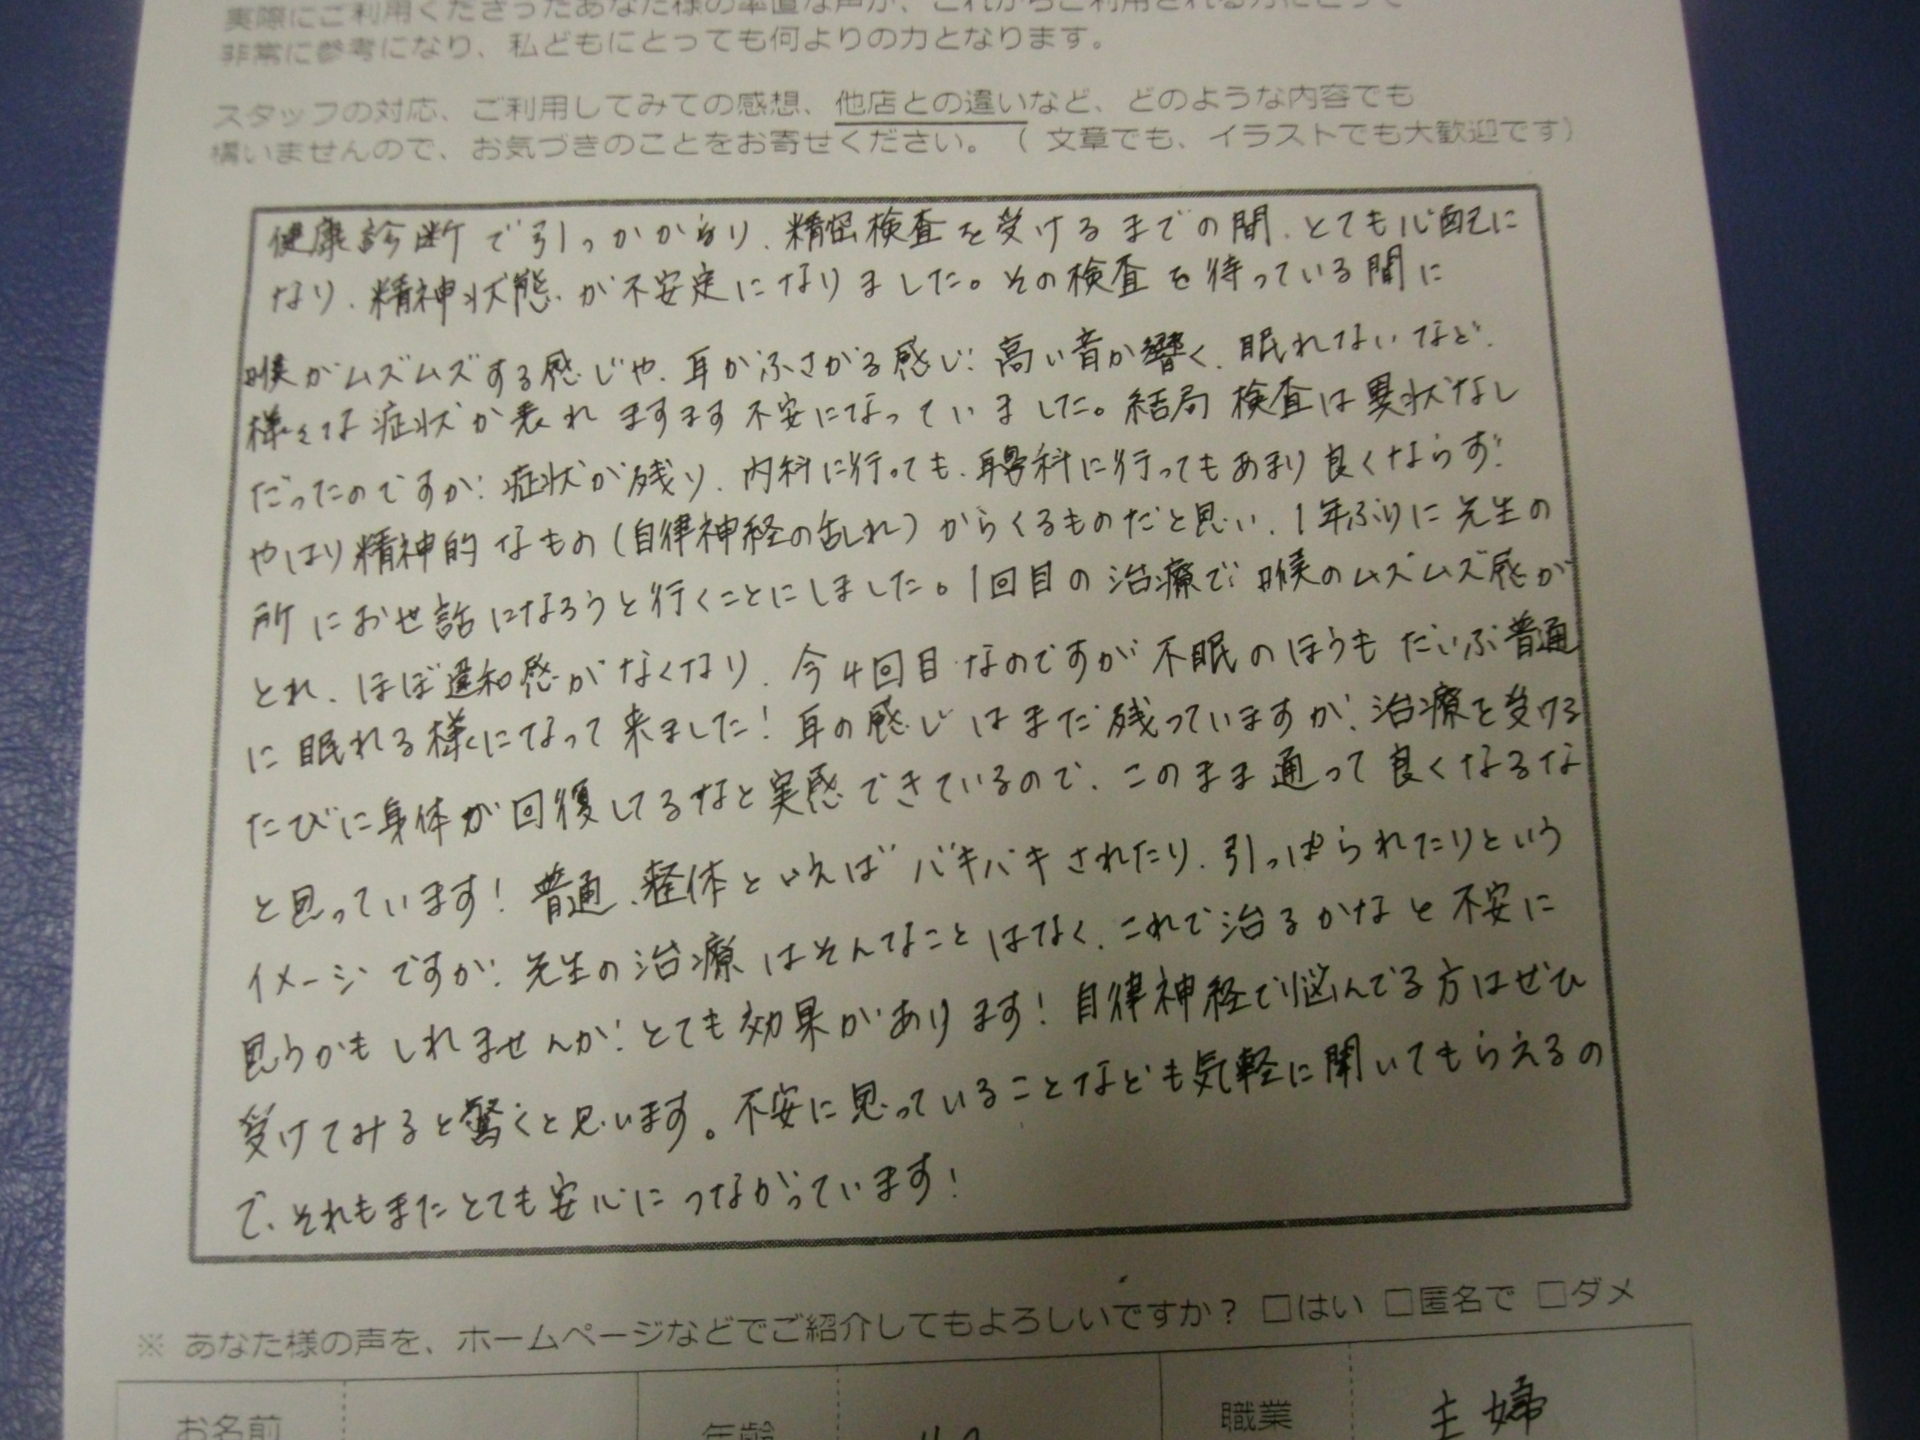 実際にご利用くださったあなた様の率直な声が、これからご利用される方にとって
非常に参考になり、私どもにとっても何よりの力となります。
スタッフの対応、ご利用してみての感想、他店との違いなど、どのような内容でも
構いませんので、お気づきのことをお寄せください。（文章でも、イラストでも大歓迎です）
健康診断で引っかかり、精密検査を受けるまでの間、とても心配に
なり、精神状態が不安定になりました。その検査を待っている間に
喉がムズムズする感じや、耳がふさがる感じ、高い音が響く、眠れないなど、
様々な症状が表れますます不安になっていました。結局検査は異状なし
だったのですが、症状が残り、内科に行っても、耳鼻科に行ってもあまり良くならず、
やはり精神的なもの（自律神経の乱れ）からくるものだと思い、1年ぶりに先生の
所にお世話になろうと行くことにしました。1回目の治療で、喉のムズムズ感が
とれ、ほぼ違和感がなくなり、今4回目なのですが不眠のほうもだいぶ普通
に眠れる様になって来ました！耳の感じはまだ残っていますが、治療を受ける
たびに身体が回復してるなと実感できているので、このまま通って良くなるな
と思っています！普通、整体といえばバキバキされたり、引っぱられたりという
イメージですが、先生の治療はそんなことはなく、これで治るかなと不安に
思うかもしれませんが、とても効果があります！自律神経で悩んでる方はぜひ
受けてみると驚くと思います。不安に思っていることなども気軽に聞いてもらえるの
で、それもまたとても安心につながっています！
※ あなた様の声を、ホームページなどでご紹介してもよろしいですか？ □はい □匿名で □ダメ
お名前 年齢 職業 主婦